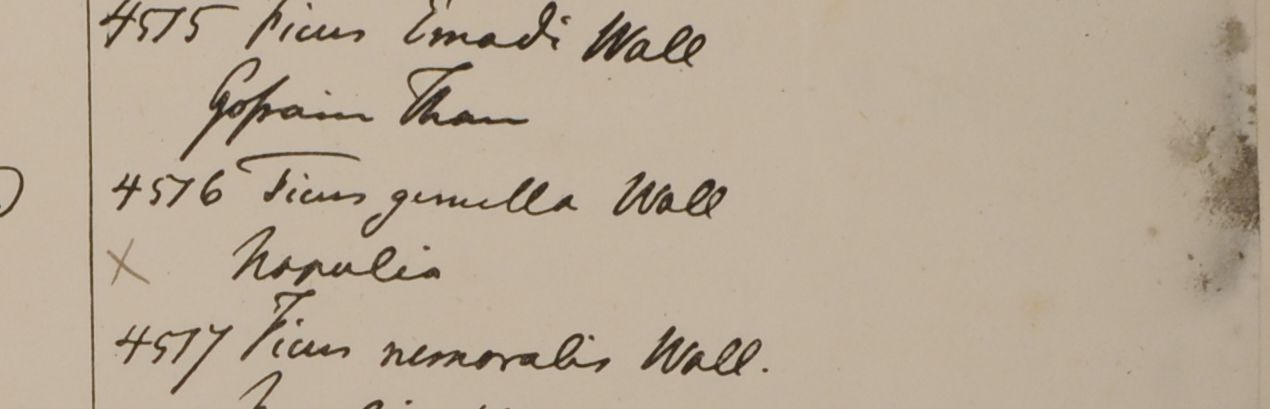 4515 Ficus Emodi Wall
Gossain Than
4516 Ficus gemella Wall
X Napalia
4517 Ficus nemoralis Wall.